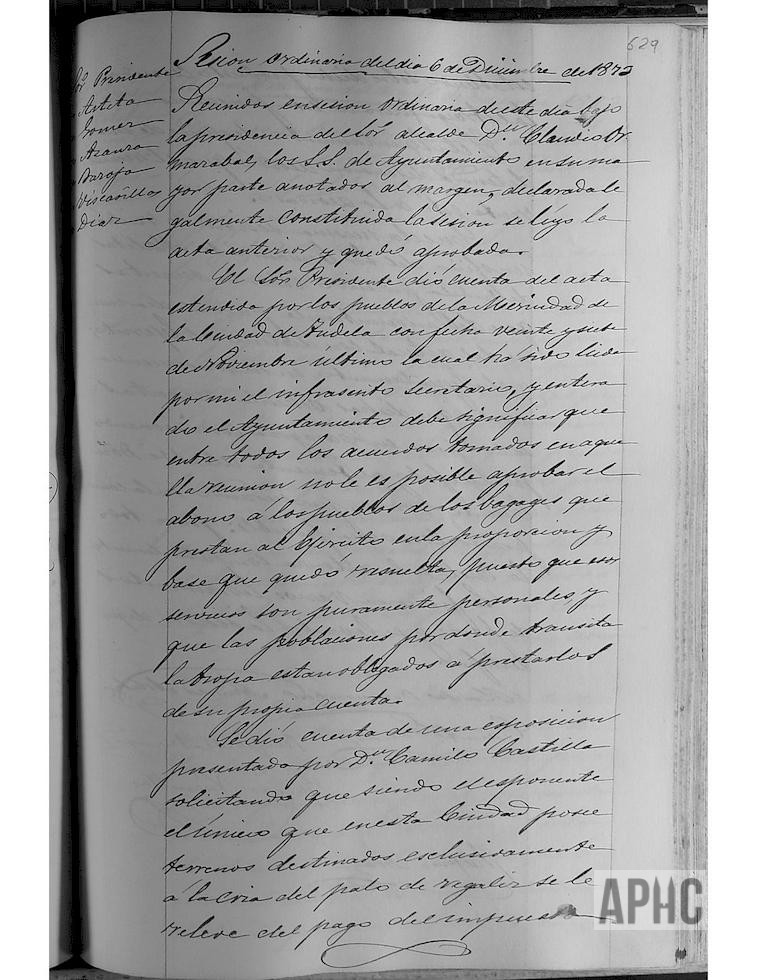 629
Sesion ordinaria del dia 6 de Diciembre de 1873
Sor. Presidente
Arteta
Gomez
Azanza
Baroja
Viscasillas
Diaz
Reunidos en sesion ordinaria de este dia bajo
la presidencia del Sor. alcalde Dn. Claudio Or
marabal, los S.S. de Ayuntamiento en su ma
yor parte anotados al margen, declarada le
galmente constituida la sesion se leyo la
acta anterior y quedó aprobada.
El Sor. Presidente dió cuenta del acta
estendida por los pueblos de la Merindad de
la Ciudad de Tudela con fecha veinte y siete
de Noviembre último la cual ha sido leida
por mi el infrascrito Secretario, y entera
do el Ayuntamiento debe significar que
entre todos los acuerdos tomados en aque
lla reunion no le es posible aprobar el
abono á los pueblos de los bagages que
prestan al Ejército en la proporcion y
base que quedo resuelta, puesto que esos
servicios son puramente personales y
que las poblaciones por donde transita
la tropa estan obligados á prestarlos
de su propia cuenta.
Se dió cuenta de una esposicion
presentada por Dn. Camilo Castilla
solicitando que siendo el esponente
el único que en esta Ciudad posee
terrenos destinados esclusivamente
á la cria del palo de regaliz se le
releve del pago del impuesto
APHC